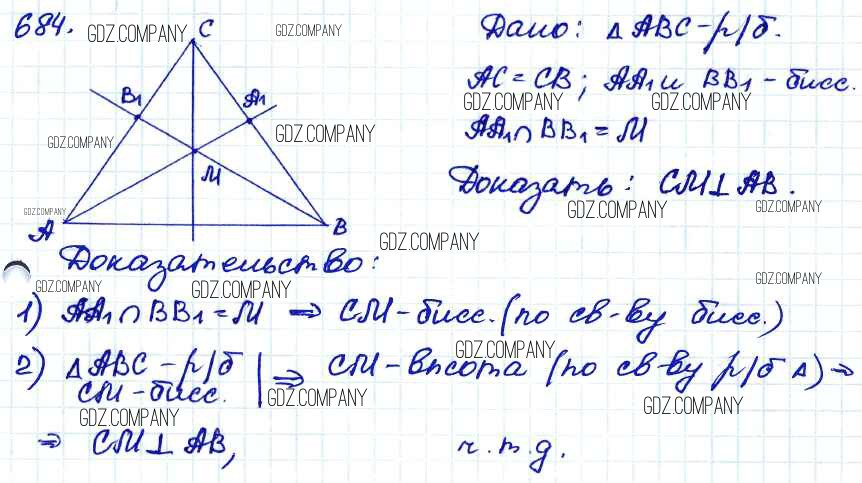 684.
GDZ.COMPANY GDZ.COMPANY
C
B₁ A₁
GDZ.COMPANY GDZ.COMPANY
M
GDZ.COMPANY
A B
Дано: △ ABC – р/б.
AC = CB; AA₁ и BB₁ – бисс.
GDZ.COMPANY GDZ.COMPANY
AA₁ ∩ BB₁ = M
Доказать: CM ⊥ AB.
GDZ.COMPANY GDZ.COMPANY
GDZ.COMPANY
Доказательство:
GDZ.COMPANY GDZ.COMPANY GDZ.COMPANY
1) AA₁ ∩ BB₁ = M ⇒ CM – бисс. (по св-ву бисс.)
GDZ.COMPANY
2) △ ABC – р/б | ⇒ CM – высота (по св-ву р/б △) ⇒
CM – бисс.
GDZ.COMPANY GDZ.COMPANY GDZ.COMPANY
⇒ CM ⊥ AB, ч.т.д.